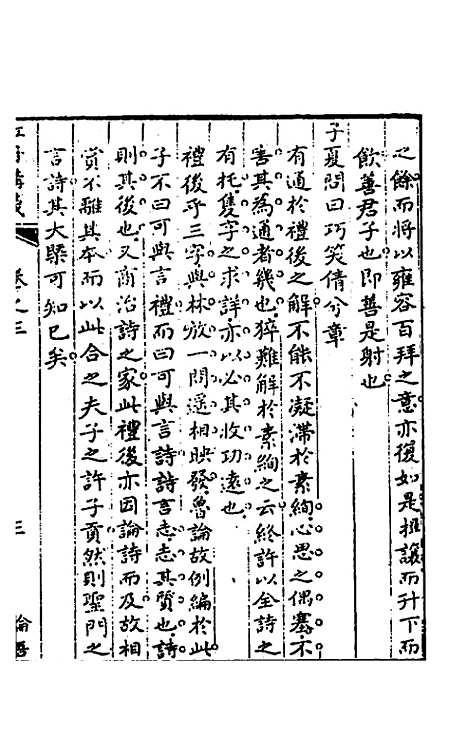 之餘而將以雍容百拜之意亦復如是揖讓而升下而
飲善君子也即善是射也
子夏問曰巧笑倩兮章
有通於禮後之解不能不凝滯於素絢心思之偶塞不
害其為通者幾也猝難解於素絢之云終許以全詩之
有托隻字之求詳亦以必其收功遠也
禮後乎三字與林放一問遥相映發魯論故例編於此
子不曰可與言禮而曰可與言詩詩言志志其質也詩
則其後也又商治詩之家此禮後亦因論詩而及故相
賞不離其本而以此合之夫子之許子貢然則聖門之
言詩其大槩可知已矣
卷之三
三
論語